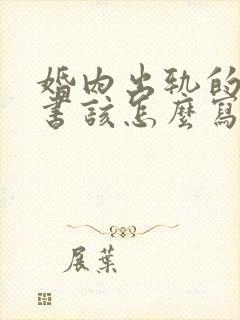 婚內出軌的
書該怎麼寫
展葉